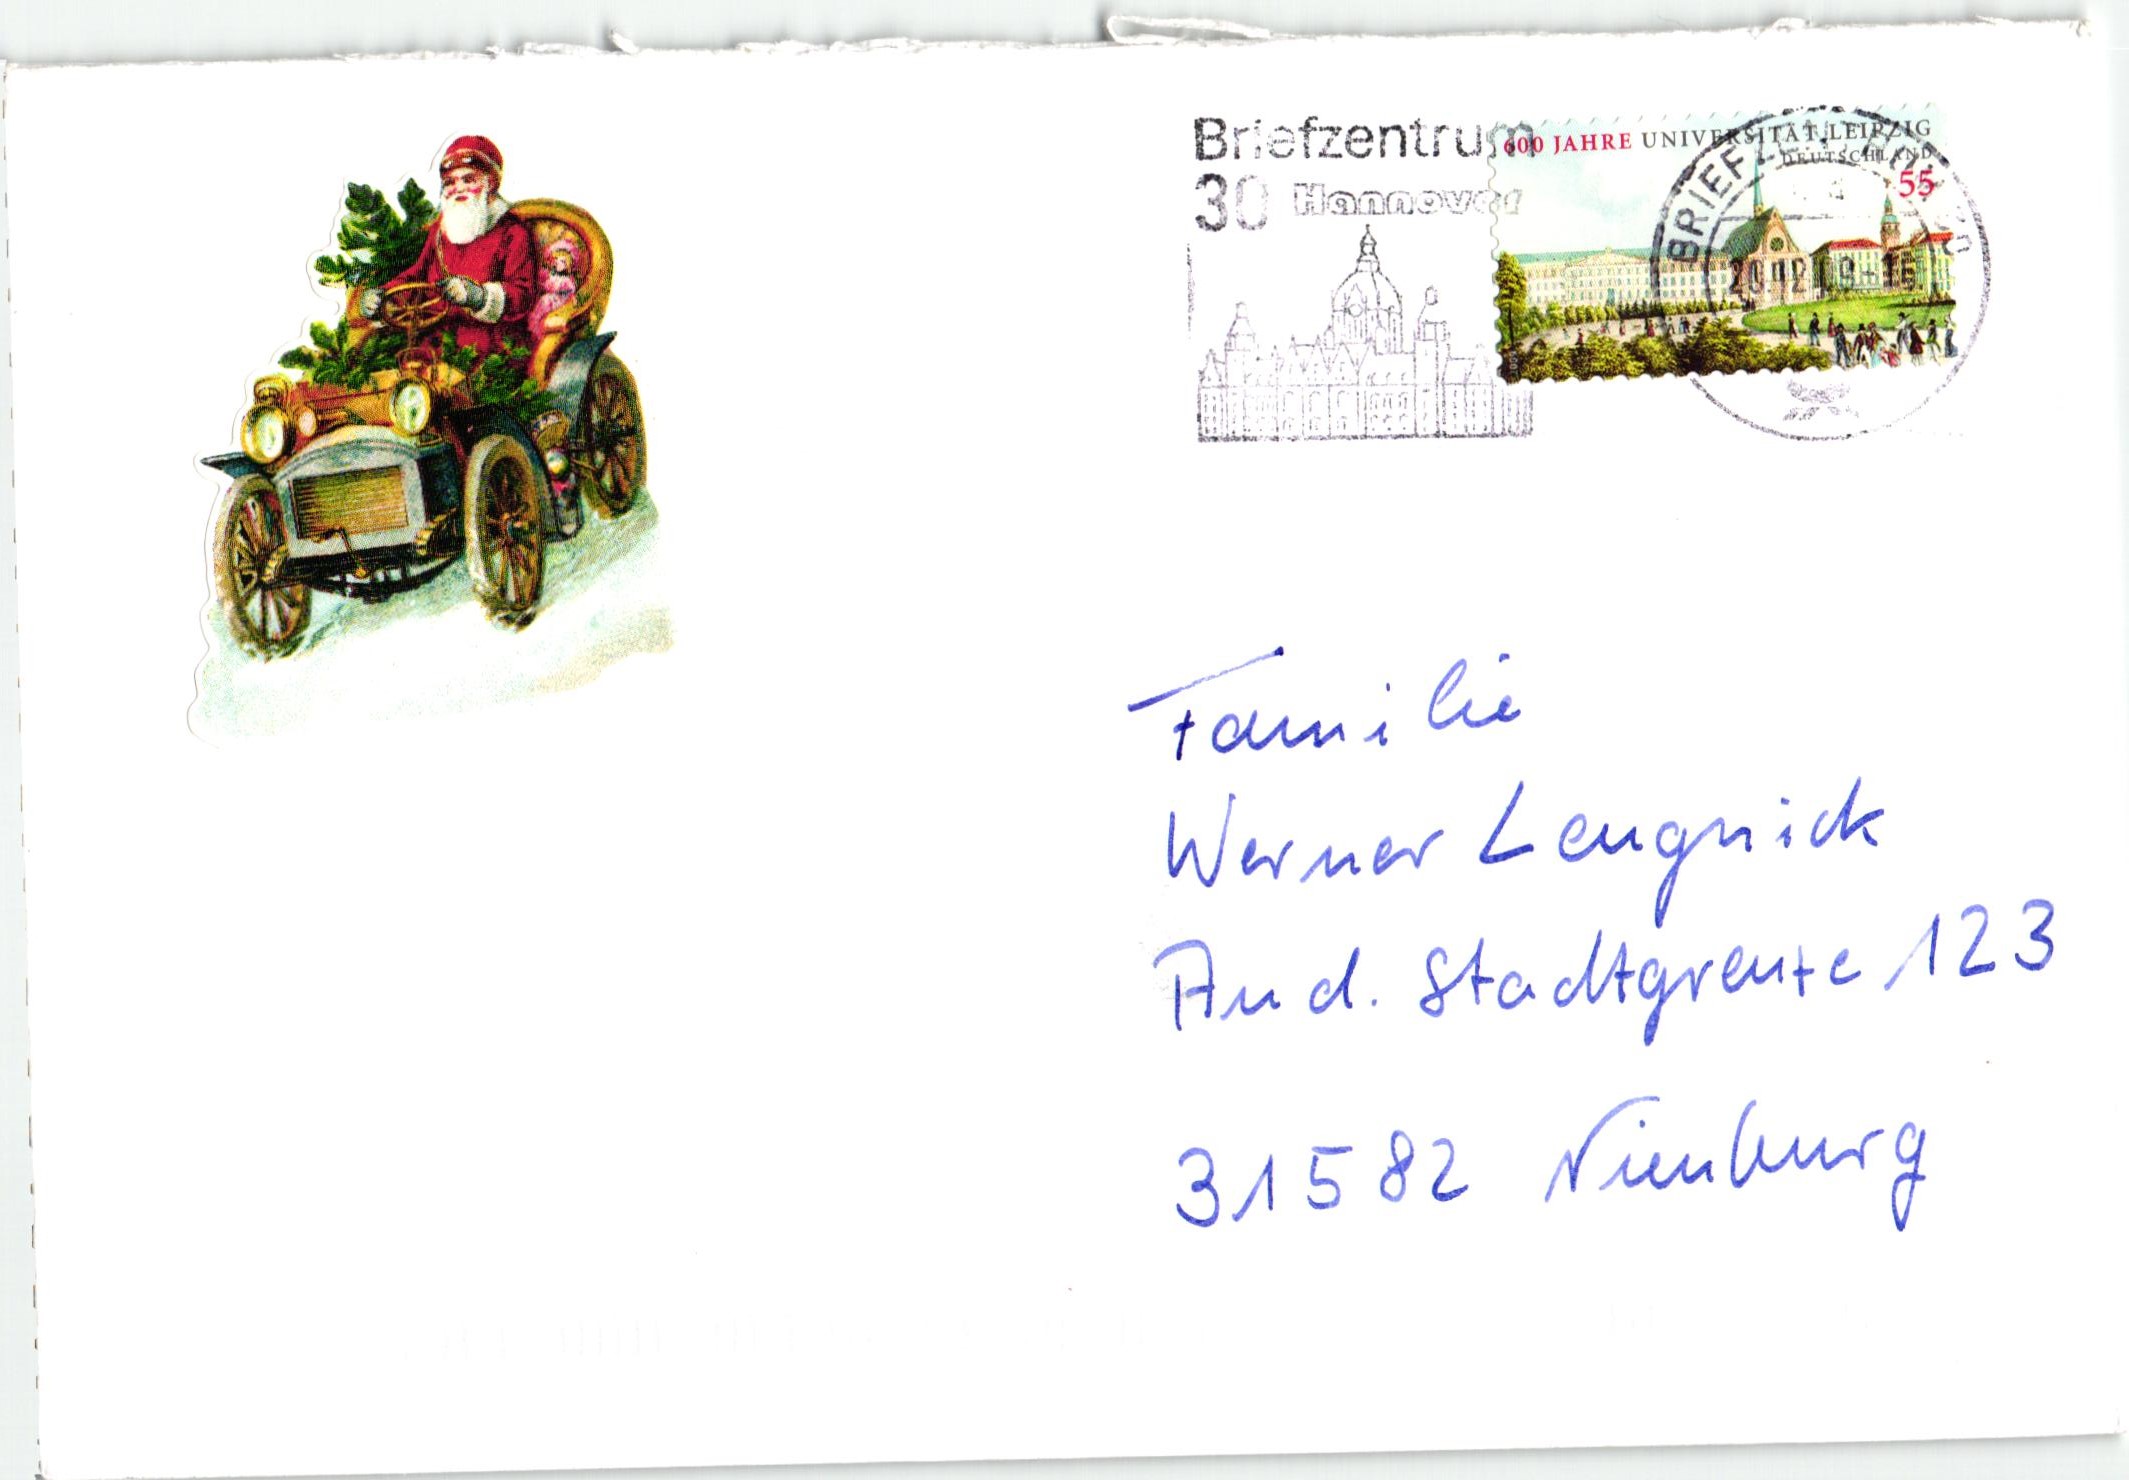 Briefzentrum
30 Hannover
600 JAHRE UNIVERSITÄT LEIPZIG
DEUTSCHLAND
55
Familie
Werner Lengnick
An d. Stadtgrenze 123
31582 Nienburg